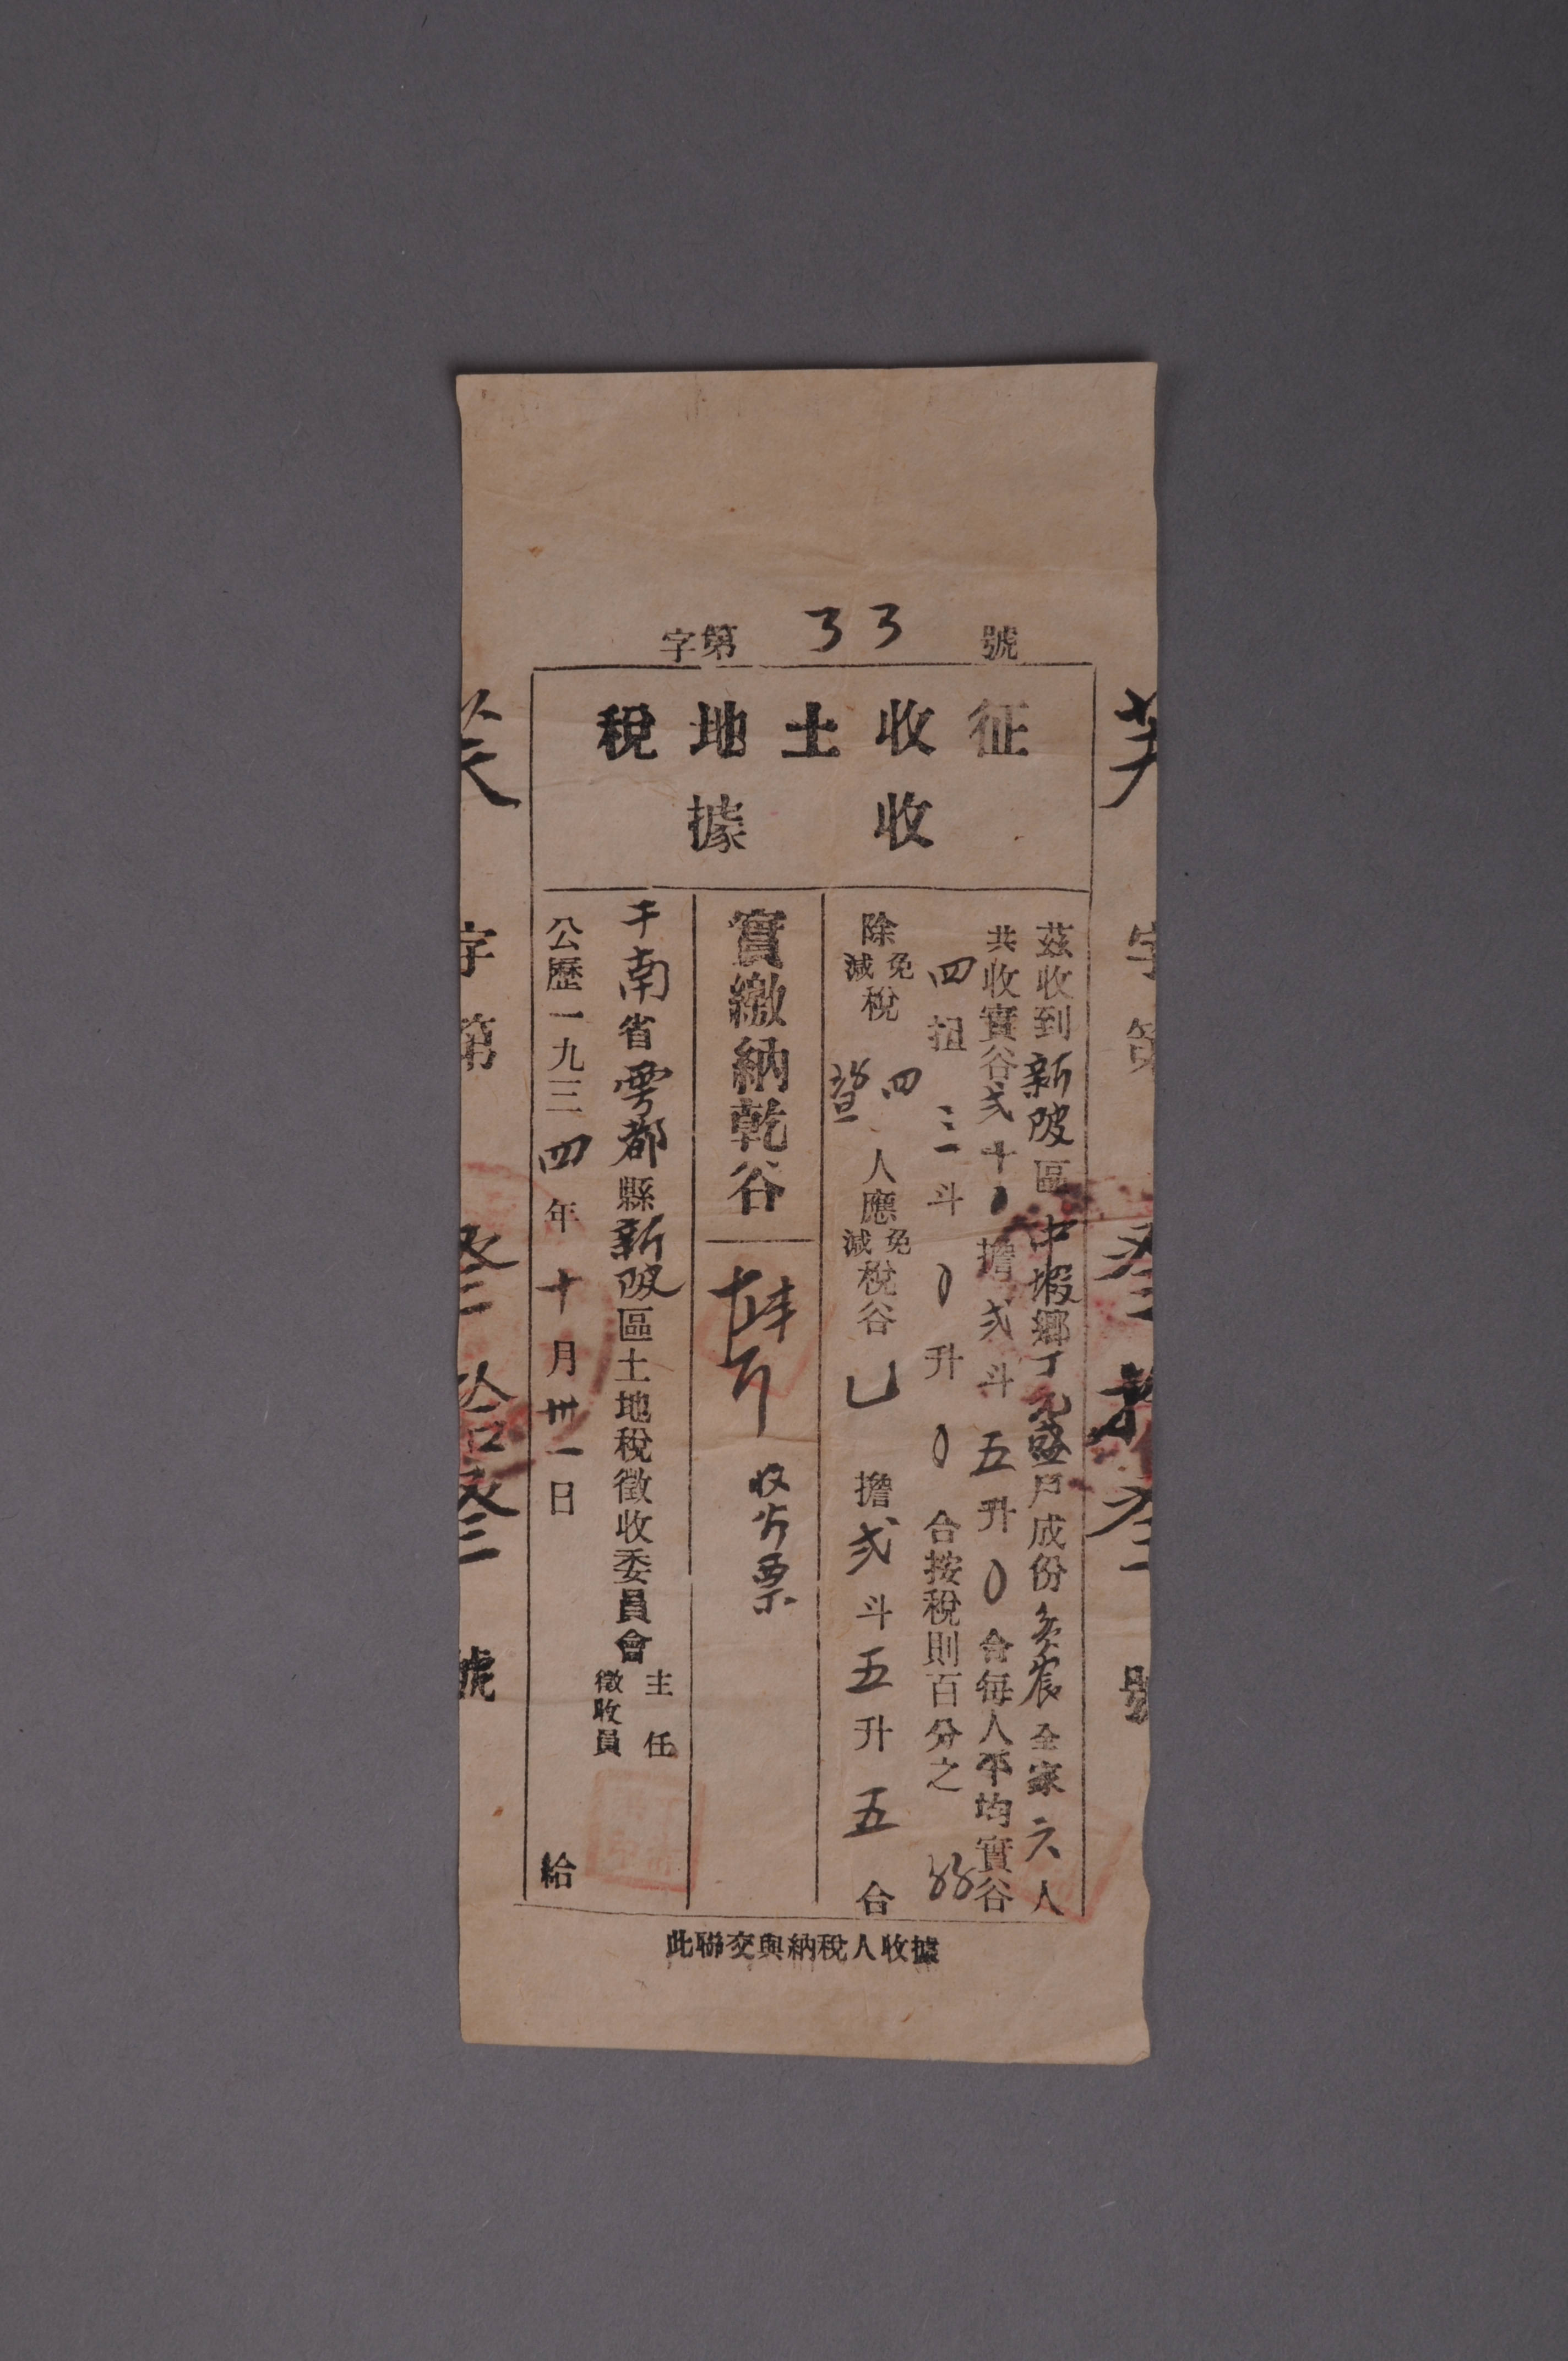 字第 33 號
征收土地稅
收據
茲收到新陂區中塅鄉丁元盛戶成份貧农全家六人
共收實谷弍十 擔弍斗五升0合每人平均實谷
四担三斗0升0合按稅則百分之
除免減稅 四 人應免減稅谷 擔弍斗五升五合
實繳納乾谷
收谷票
干南省雩都縣新陂區土地稅徵收委員會主任徵收員
公歷一九三四年十月卅一日 給
此聯交與納稅人收據
字第叁拾叁號
字第叁 叁號